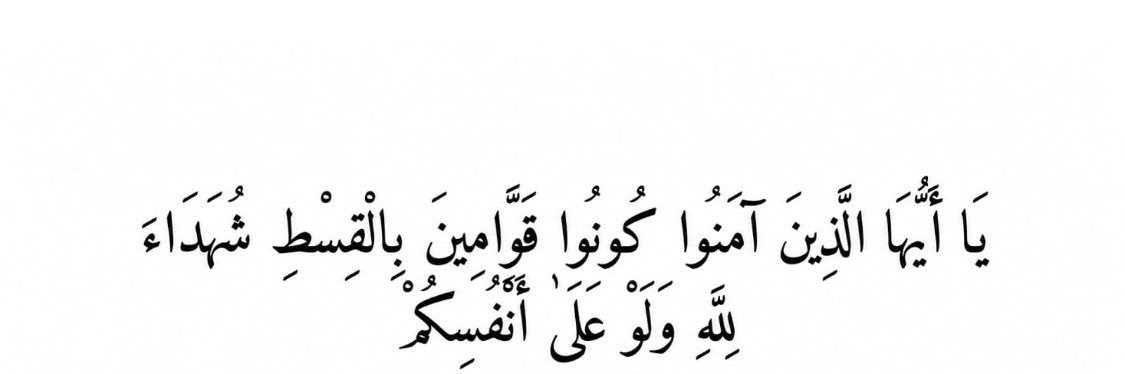 يَا أَيُّهَا الَّذِينَ آمَنُوا كُونُوا قَوَّامِينَ بِالْقِسْطِ شُهَدَاءَ
لِلَّهِ وَلَوْ عَلَىٰ أَنْفُسِكُمْ